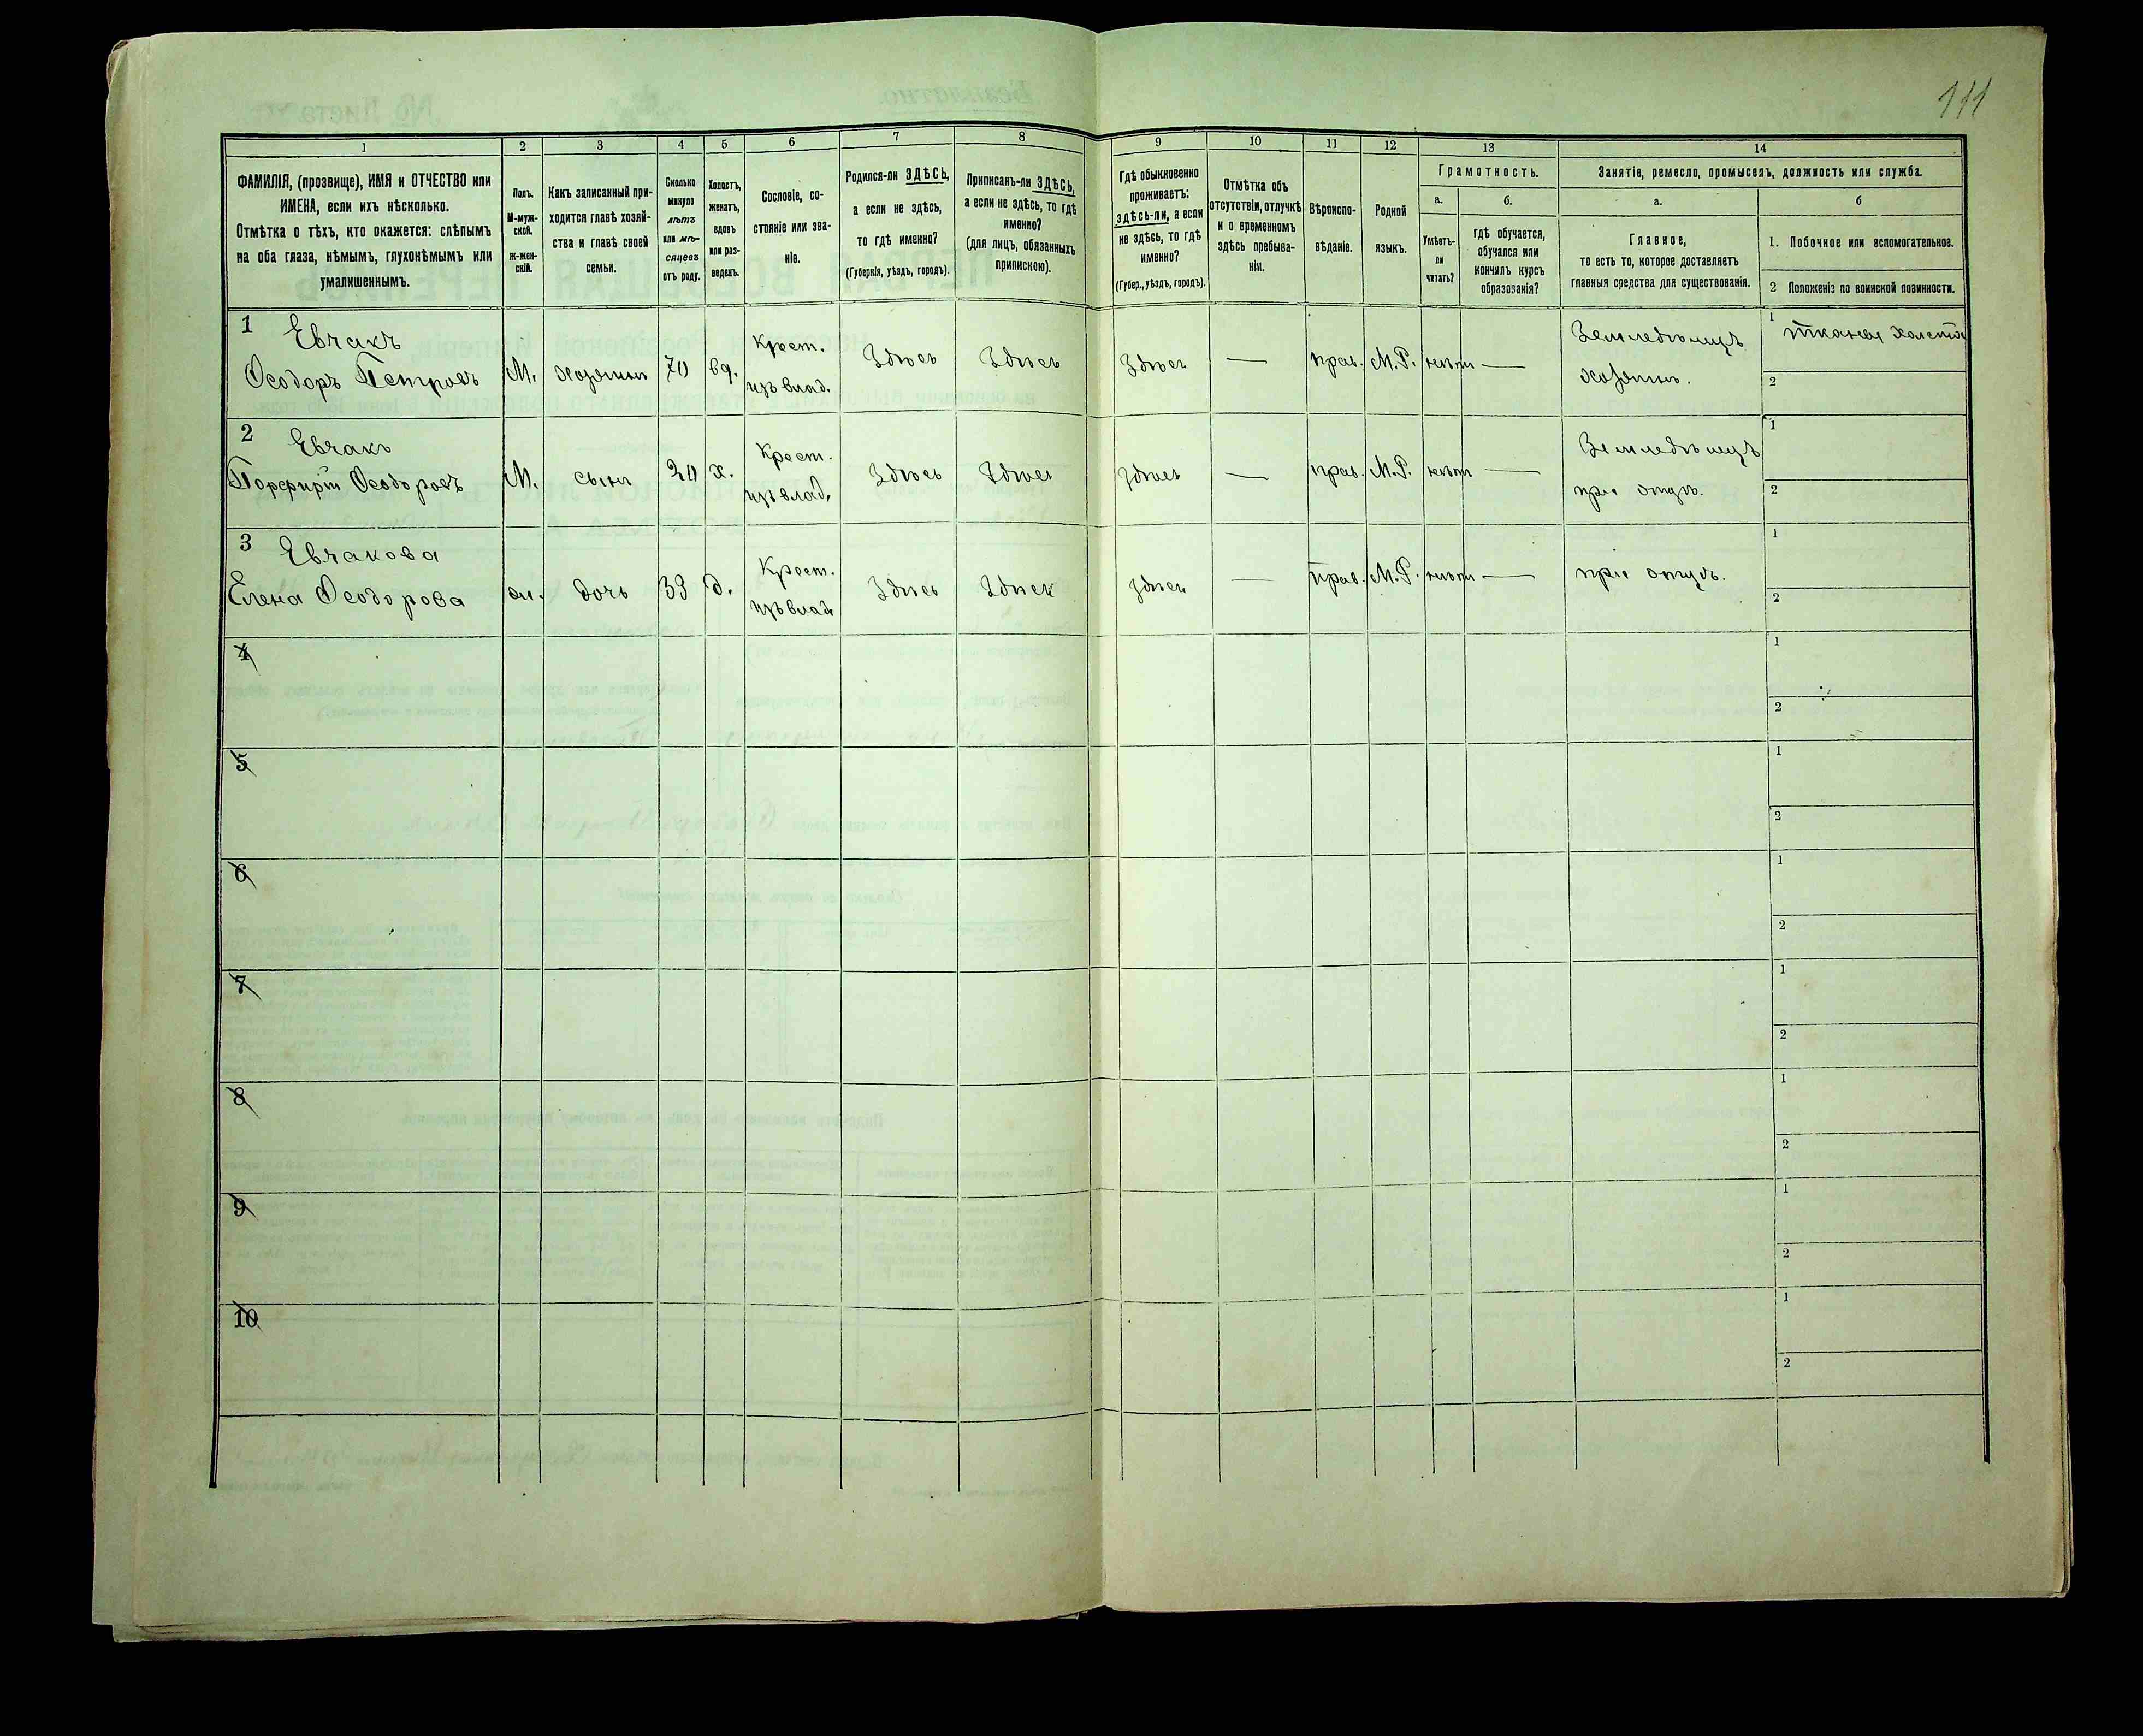 111
1 2 3 4 5 6 7 8 9 10 11 12 13 14
ФАМИЛІЯ, (прозвище), ИМЯ и ОТЧЕСТВО или
ИМЕНА, если ихъ нѣсколько.
Отмѣтка о тѣхъ, кто окажется: слѣпымъ
на оба глаза, нѣмымъ, глухонѣмымъ или
умалишеннымъ.
Полъ.
М-муж-
ской.
Ж-жен-
скій.
Какъ записанный при-
ходится главѣ хозяй-
ства и главѣ своей
семьи.
Сколько
минуло
лѣтъ
или мѣ-
сяцевъ
отъ роду.
Холостъ,
женатъ,
вдовъ
или раз-
веденъ.
Сословіе, со-
стояніе или зва-
ніе.
Родился-ли ЗДѢСЬ,
а если не здѣсь,
то гдѣ именно?
(Губернія, уѣздъ, городъ).
Приписанъ-ли ЗДѢСЬ,
а если не здѣсь, то гдѣ
именно?
(для лицъ, обязанныхъ
припискою).
Гдѣ обыкновенно
проживаетъ:
здѣсь-ли, а если
не здѣсь, то гдѣ
именно?
(Губер., уѣздъ, городъ).
Отмѣтка объ
отсутствіи, отлучкѣ
и о временномъ
здѣсь пребыва-
ніи.
Вѣроиспо-
вѣданіе.
Родной
языкъ.
Грамотность.
а.
Умѣетъ-
ли
читать?
б.
гдѣ обучается,
обучался или
кончилъ курсъ
образованія?
Занятіе, ремесло, промыселъ, должность или служба.
а.
Главное,
то есть то, которое доставляетъ
главныя средства для существованія.
б
1. Побочное или вспомогательное.
2 Положеніе по воинской повинности.
1 Евчакъ Крест. Земледѣлецъ 1 тканья холстов
Ѳеодоръ Петровъ М. хозяинъ 70 вд. изъ влад. Здѣсь Здѣсь Здѣсь — прав. М.Р. нѣтъ — хозяинъ. 2
2 Евчакъ Крест. Земледѣлецъ 1
Порфирій Ѳеодоровъ М. сынъ 20 х. изъ влад. Здѣсь Здѣсь Здѣсь — прав. М.Р. нѣтъ — при отцѣ. 2
3 Евчакова Крест. 1
Елена Ѳеодорова ж. дочь 33 д. изъ влад. Здѣсь Здѣсь Здѣсь — прав. М.Р. нѣтъ — при отцѣ. 2
4 1
2
5 1
2
6 1
2
7 1
2
8 1
2
9 1
2
10 1
2